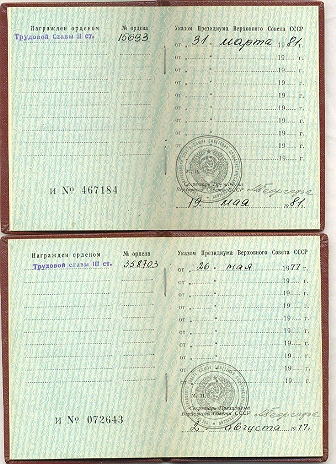 Награжден орденом № ордена
Трудовой Славы II ст. 15693
И № 467184
Указом Президиума Верховного Совета СССР
от „31" марта 1981 г.
от „ " 19 г.
от „ " 19 г.
от „ " 19 г.
от „ " 19 г.
от „ " 19 г.
от 19 г.
19 г.
19 г.
Секретарь Президиума
Верховного Совета СССР
19 мая 1981.
Награжден орденом № ордена
Трудовой славы III ст. 358703
И № 072643
Указом Президиума Верховного Совета СССР
от „26" мая 1977 г.
от „ " 19 г.
от „ " 19 г.
от „ " 19 г.
от „ " 19 г.
от „ " 19 г.
от „ " 19 г.
19 г.
19 г.
Секретарь Президиума
Верховного Совета СССР
августа 1977.